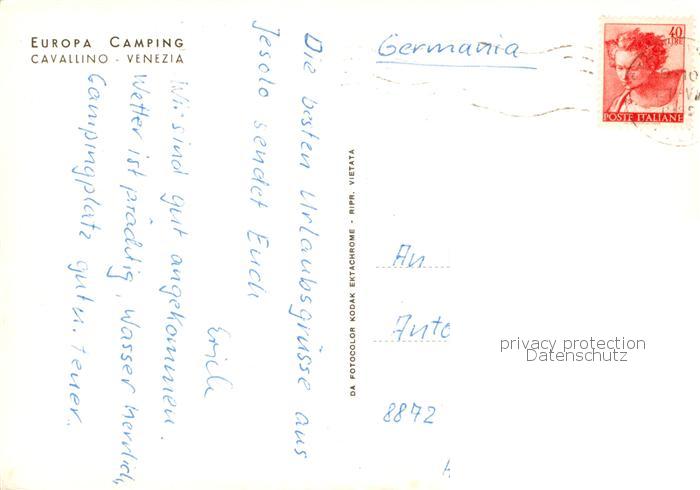 EUROPA CAMPING
CAVALLINO - VENEZIA
Die besten Urlaubsgrüsse aus
Jesolo sendet Euch
Erich
Wir sind gut angekommen.
Wetter ist prächtig, Wasser herrlich,
Campingplatz gut u. teuer.
DA FOTOCOLOR KODAK EKTACHROME - RIPR. VIETATA
Germania
40
LIRE
POSTE ITALIANE
An
8872
privacy protection
Datenschutz